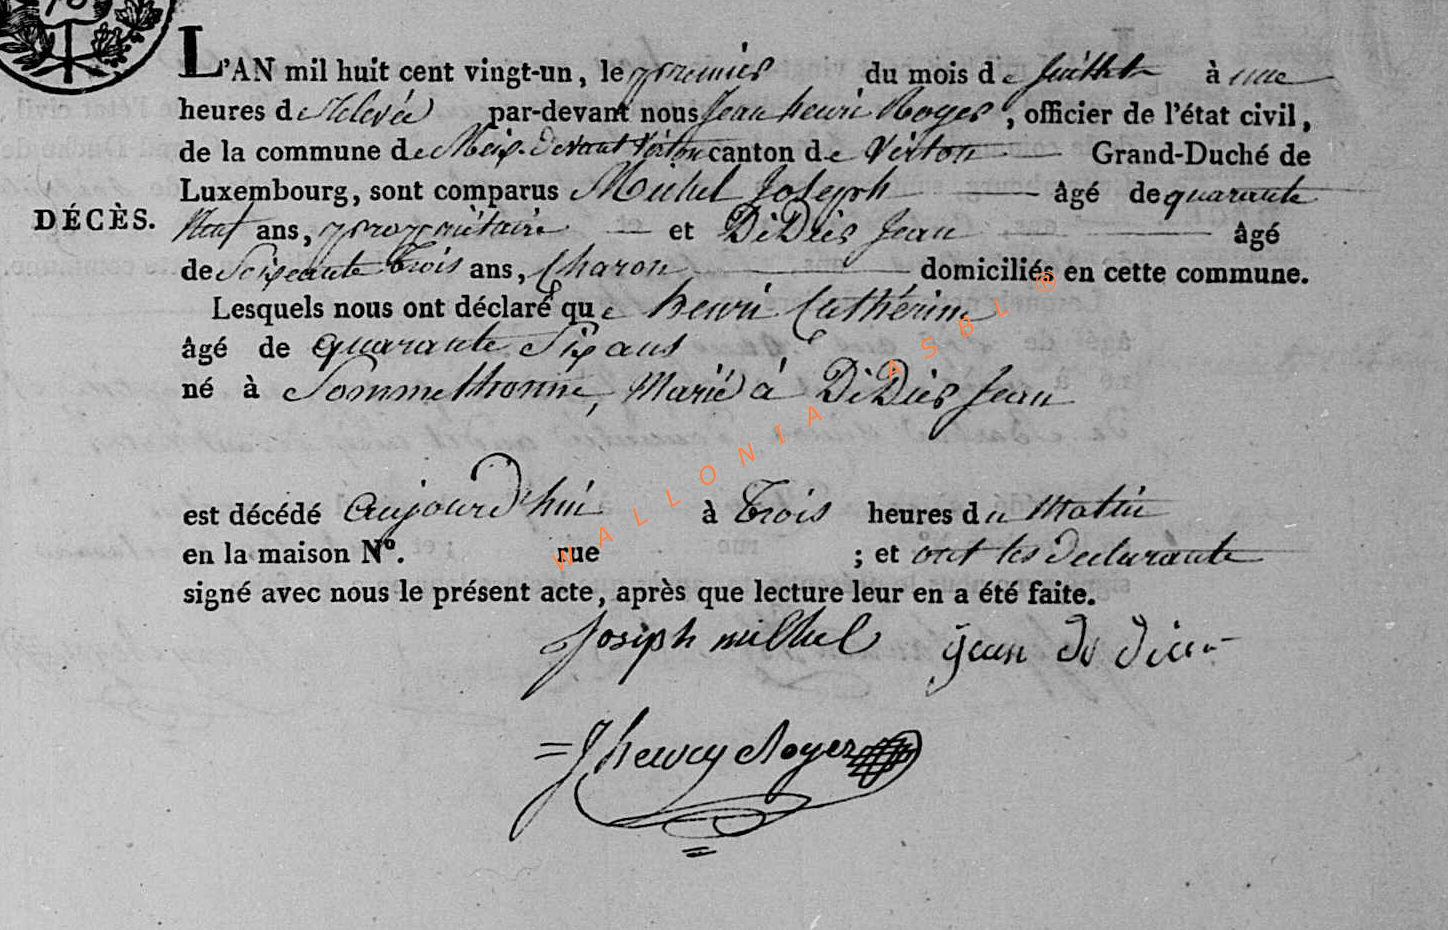 L'AN mil huit cent vingt-un, le premier du mois de Juillet à une
heures de relevée par-devant nous Jean henri Royer, officier de l'état civil,
de la commune de Meix-devant Virton canton de Virton Grand-Duché de
Luxembourg, sont comparus Michel Joseph âgé de quarante
DÉCÈS.
Neuf ans, propriétaire et DiDier Jean âgé
de Soixante trois ans, Charon domiciliés en cette commune.
Lesquels nous ont déclaré que henri Cathérine
âgé de quarante Six ans
né à Sommethonne, Marié à DiDier Jean
est décédé aujourd'hui à trois heures du Matin
en la maison N°. rue ; et ont les declarants
signé avec nous le présent acte, après que lecture leur en a été faite.
Joseph michel jean di dier
J henry Royer
WALLONIA ASBL ®